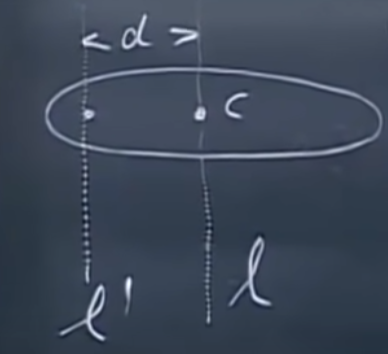 < d >
C
l'
l